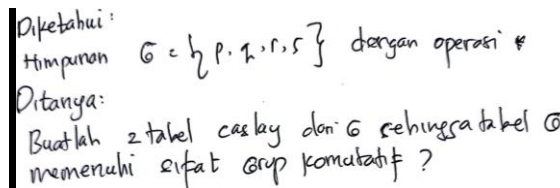 Diketahui:
Himpunan G = { p, q, r, s } dengan operasi *
Ditanya:
Buatlah 2 tabel caslay dari G sehingga tabel G
memenuhi sifat Grup komutatif ?